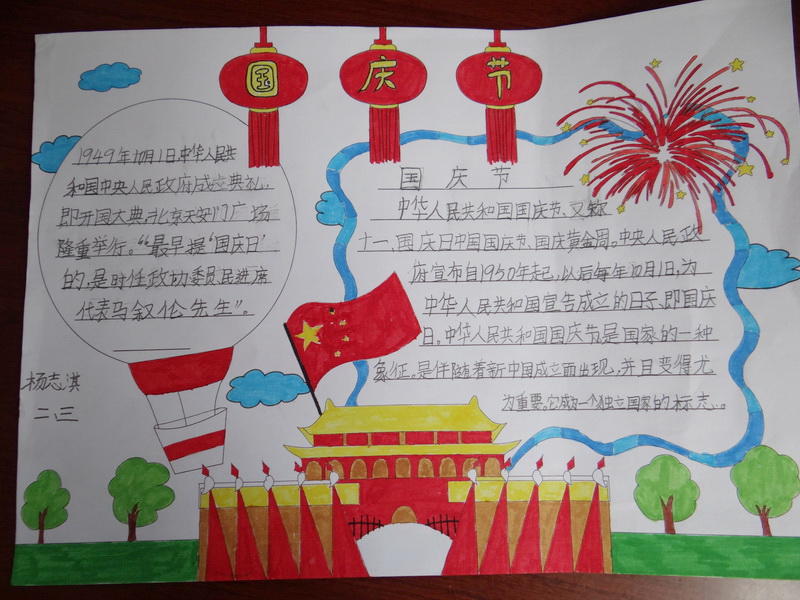 国 庆 节
1949年10月1日,中华人民共
和国中央人民政府成立典礼,
即开国大典,北京天安门广场
隆重举行。“最早提‘国庆日’
的,是时任政协委员民进席
代表马叙伦先生”。
杨志淇
二、三
国 庆 节
中华人民共和国国庆节、又称
十一、国庆日中国国庆节、国庆黄金周。中央人民政
府宣布自1950年起,以后每年10月1日,为
中华人民共和国宣告成立的日子,即国庆
日。中华人民共和国国庆节是国家的一种
象征。是伴随着新中国成立而出现,并且变得尤
为重要。它成为一个独立国家的标志...。